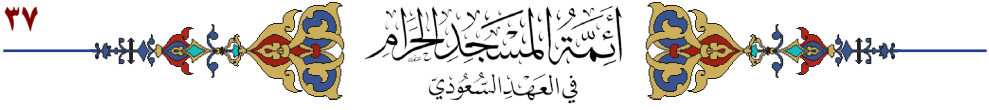 ٣٧
أَئِمَّةُ المَسْجِدِ الحَرَامِ
في العَهْدِ السُّعُودِيِّ